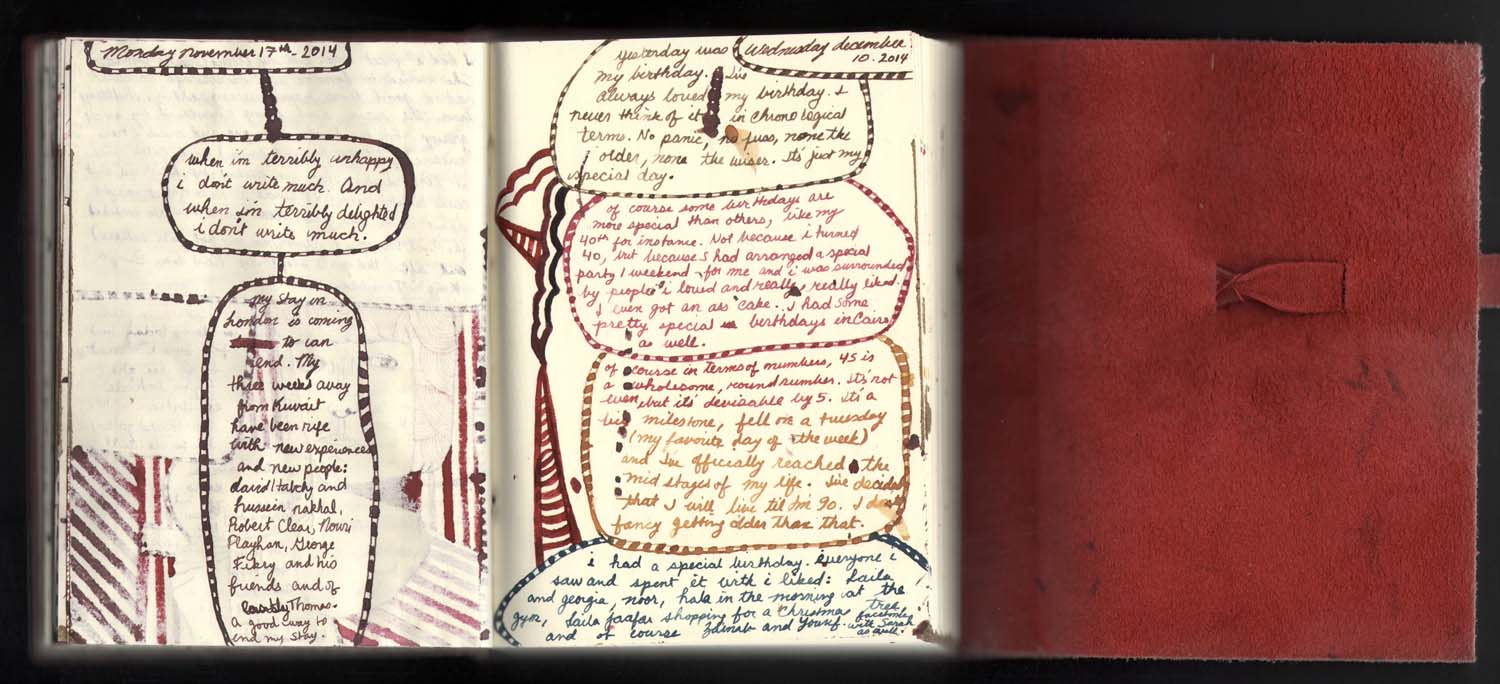 Monday november 17th - 2014
when i'm terribly unhappy
i don't write much. And
when i'm terribly delighted
i don't write much.
my stay in
London is coming
to an
end. My
three weeks away
from Kuwait
have been rife
with new experiences
and new people:
david and
hussein nakhal,
Robert Clear, Nouri
Playhan, George
Fikry and his
friends and of
Thomas.
A good way to
end my stay.
Wednesday december
10. 2014
yesterday was
my birthday. I've
always loved my birthday. I
never think of it in chronological
terms. No panic, no fuss, none the
older, none the wiser. It's just my
special day.
of course some birthdays are
more special than others, like my
40th for instance. Not because i turned
40, but because I had arranged a special
party / weekend for me and i was surrounded
by people i loved and really, really liked.
I even got an ass cake. I had some
pretty special birthdays in Cairo
as well.
of course in terms of numbers, 45 is
a wholesome, round number. It's not
even, but its devisable by 5. It's a
big milestone, fell on a tuesday
(my favourite day of the week)
and I've officially reached the
mid stages of my life. I've decided
that I will live til I'm 90. I don't
fancy getting older than that.
i had a special birthday. Everyone i
saw and spent it with i liked: Laila
and georgia, noor, hala in the morning at the
gym, Laila jaafar shopping for a Christmas tree,
facetime
with Sarah
as well.
and of course Zainab and Yousif.